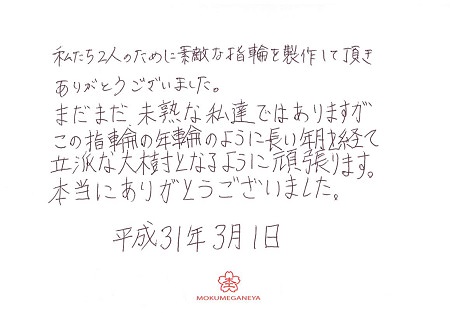 私たち2人のために素敵な指輪を製作して頂き
ありがとうございました。
まだまだ、未熟な私達ではありますが
この指輪の年輪のように長い年月を経て
立派な大樹となるように頑張ります。
本当にありがとうございました。
平成31年3月1日
MOKUMEGANEYA